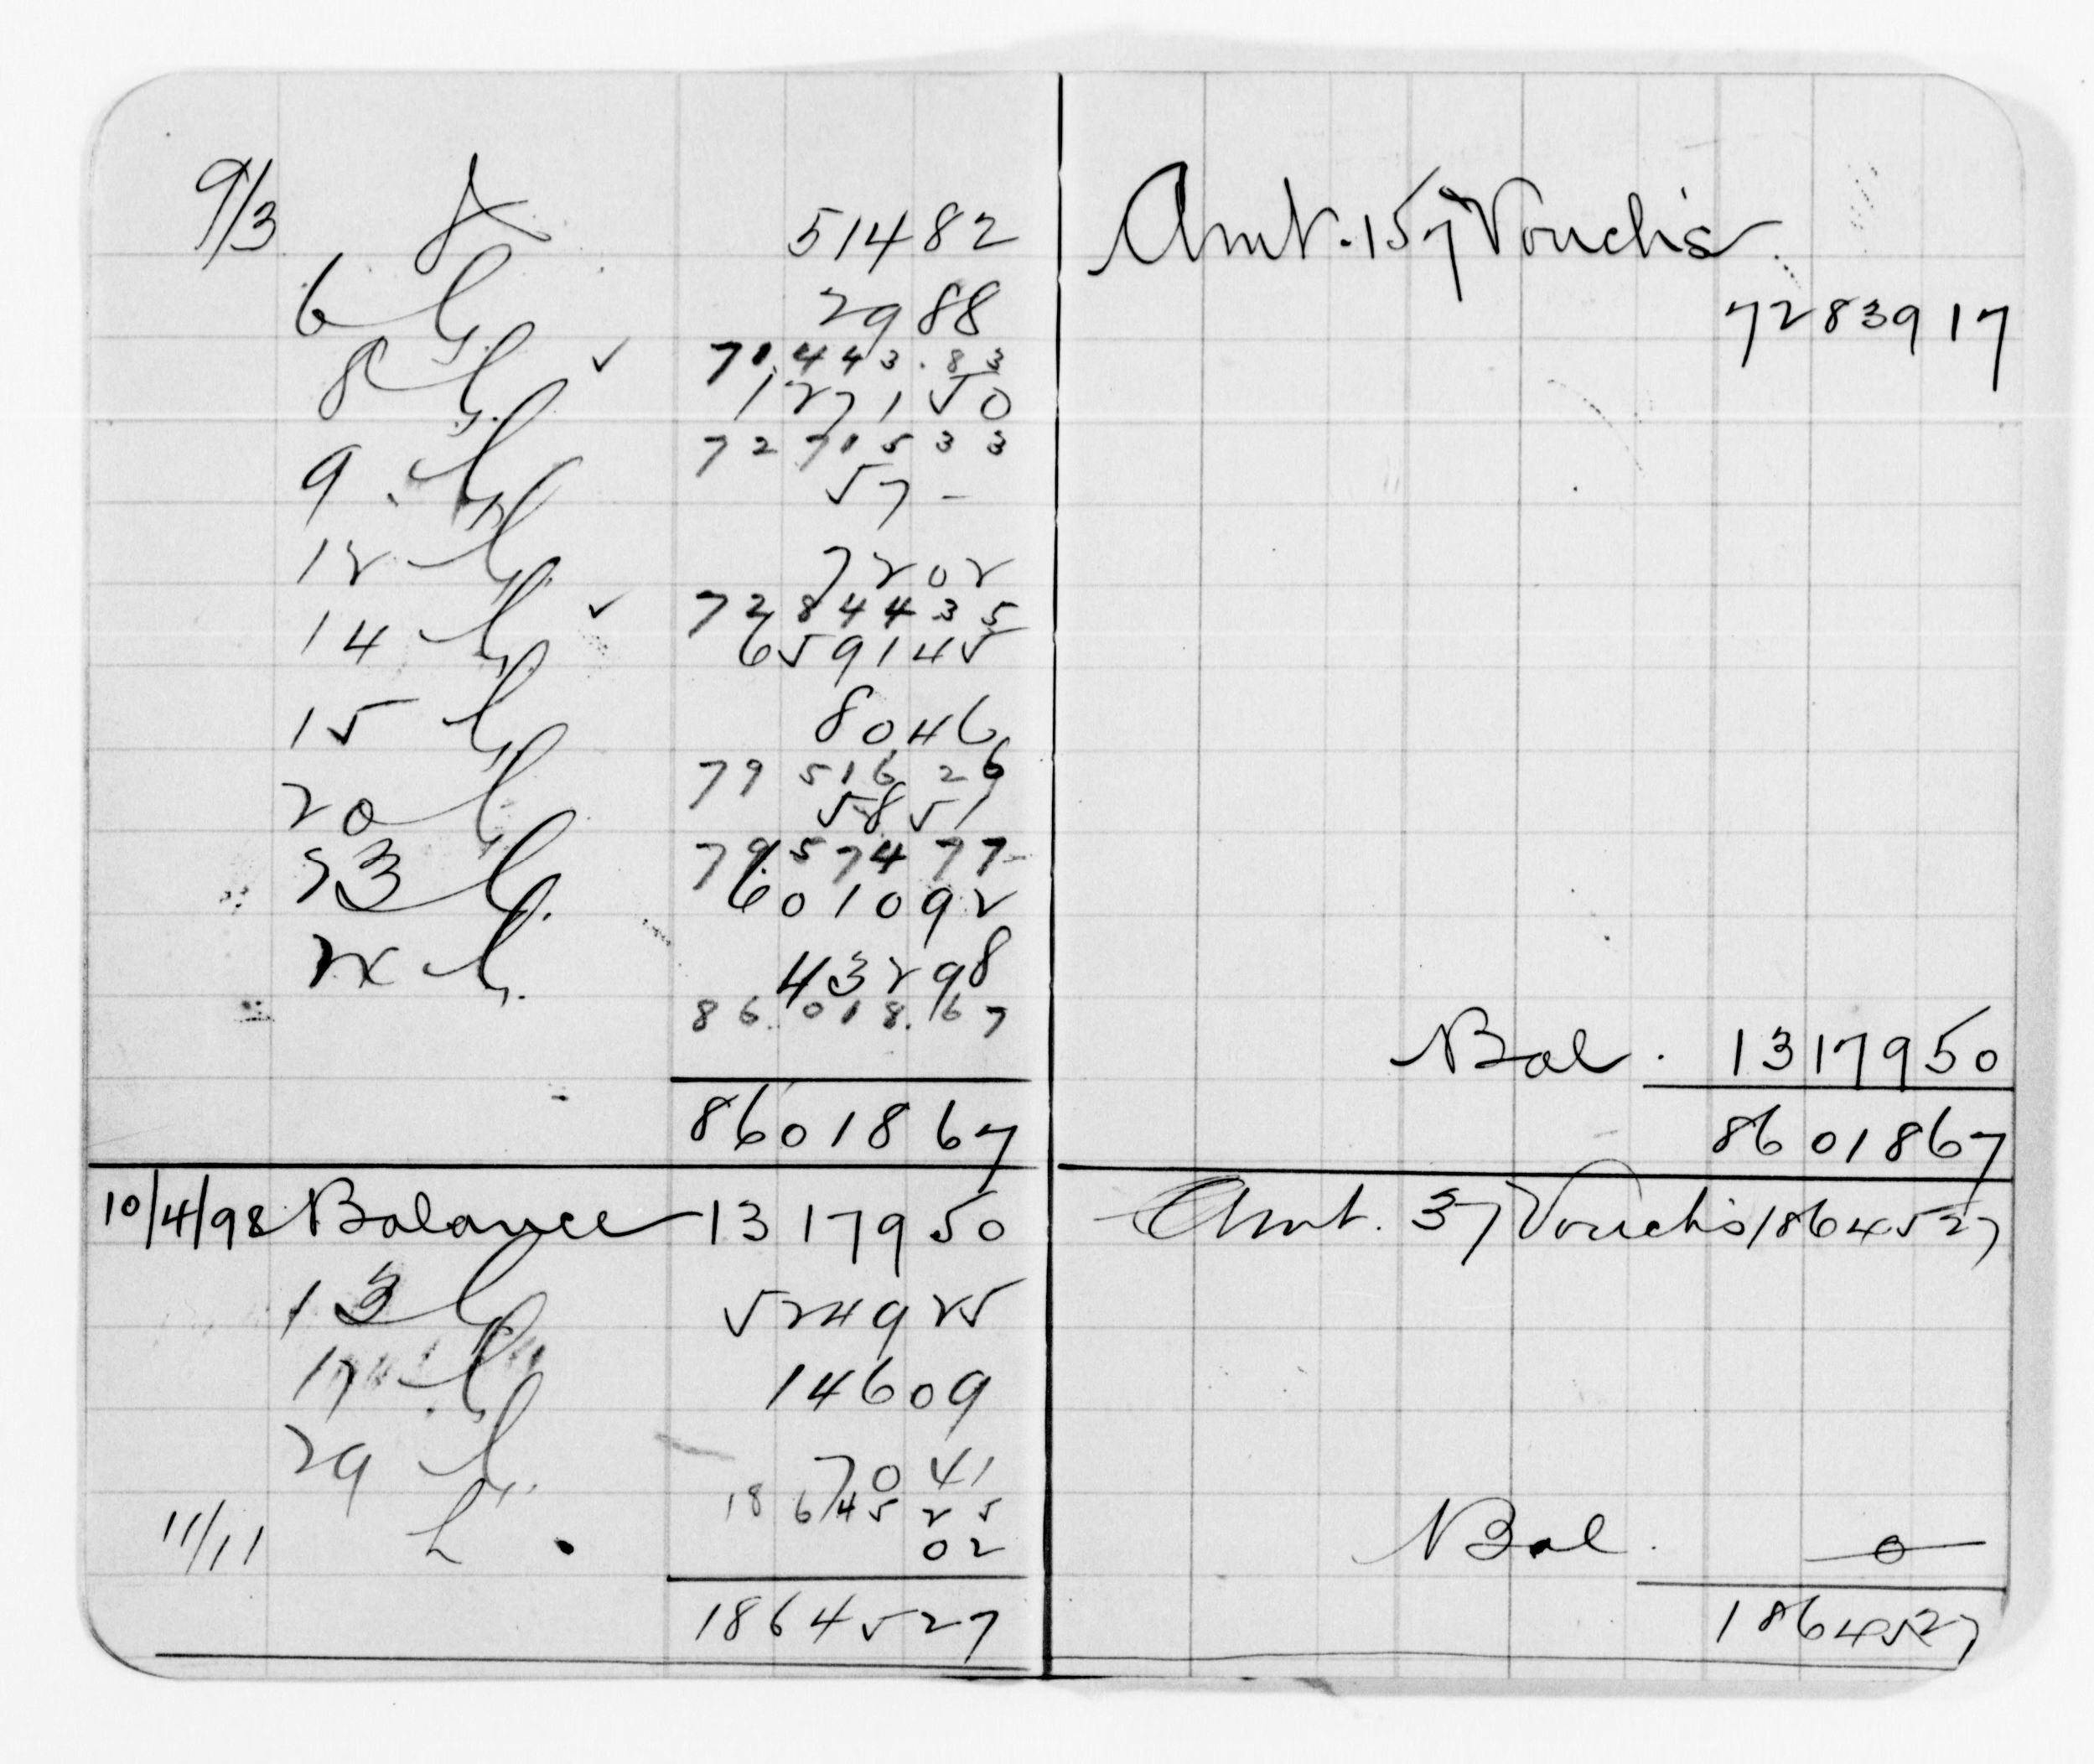 9/3 514 82
6 29 88
8 ✓ 70,443.83
1271 50
727 15 33
9 57 -
12 72 02
72844 35
14 ✓ 6591 45
15 80 46
79 516 26
20 58 51
79,574 77
23 6010 92
432 98
86.018.67
86018 67
10/4/98 Balance 13179 50
13 5249 25
17 146 09
29 70 41
18645 25
11/11 02
18645 27
Amt. 157 Vouch's
72839 17
Bal. 13179 50
86018 67
Amt. 37 Vouch's 18645 27
Bal. 0
18645 27